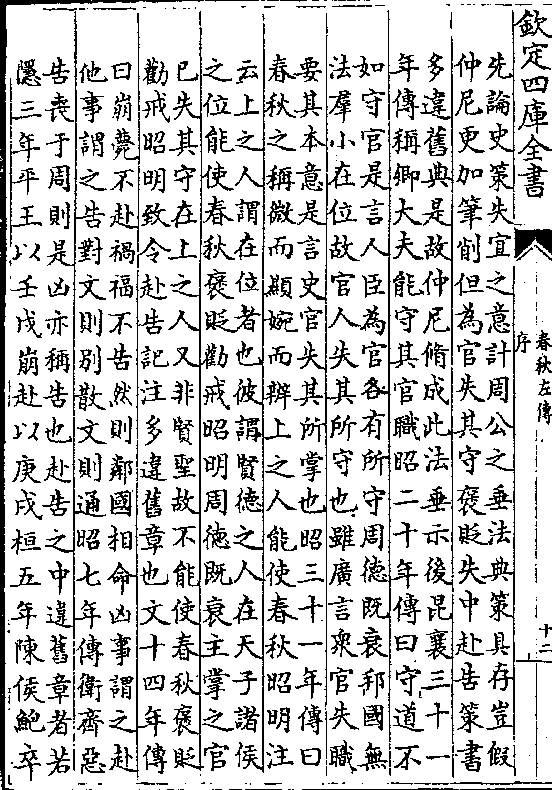 欽定四庫全書
春秋左傳
序
十二
先論史策失宜之意計周公之垂法典策具存豈假
仲尼更加筆削但為官失其守褒貶失中赴告策書
多違舊典是故仲尼脩成此法垂示後昆襄三十一
年傳稱卿大夫能守其官職昭二十年傳曰守道不
如守官是言人臣為官各有所守周德既衰邦國無
法羣小在位故官人失其所守也雖廣言衆官失職
要其本意是言史官失其所掌也昭三十一年傳曰
春秋之稱微而顯婉而辨上之人能使春秋昭明注
云上之人謂在位者也彼謂賢德之人在天子諸侯
之位能使春秋褒貶勸戒昭明周德既衰主掌之官
已失其守在上之人又非賢聖故不能使春秋褒貶
勸戒昭明致令赴告記注多違舊章也文十四年傳
曰崩薨不赴禍福不告然則鄰國相命凶事謂之赴
他事謂之告對文則別散文則通昭七年傳衛齊惡
告喪于周則是凶亦稱告也赴告之中違舊章者若
隱三年平王以壬戌崩赴以庚戌桓五年陳侯鮑卒